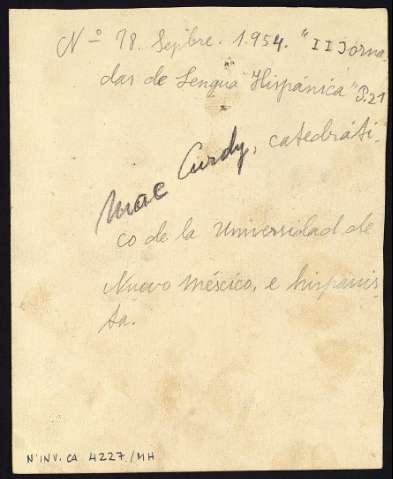 Nº 78. Sepbre. 1.954. "II Jorna-
das de Lengua Hispánica" P.21
Mac Curdy, catedráti-
co de la Universidad de
Nuevo Méscico, e hispanis-
ta.
Nº INV. CA 4227/MH